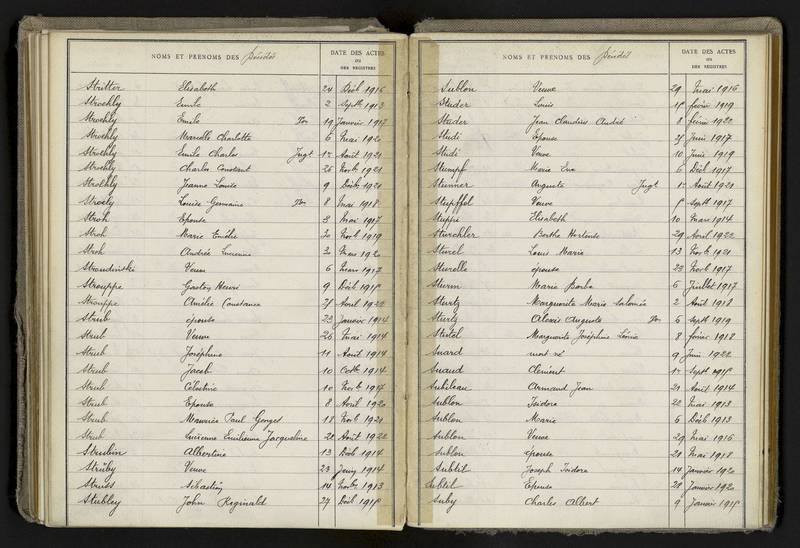 NOMS ET PRENOMS DES Décédés
DATE DES ACTES
OU
DES REGISTRES
Stritter Elisabeth 24 Déb 1916
Strohly Emile 2 Septb 1913
Strohly Emile 19 Janvier 1917
Strohly Marcelle Charlotte 6 Mai 1920
Strohly Emile Charles Jugt 12 Août 1920
Strohly Charles Constant 26 Novb 1921
Strohly Jeanne Louise 9 Déb 1921
Stroely Louise Germaine 8 Mai 1918
Stroh Epouse 3 Mai 1917
Stroh Marie Emélie 30 Novb 1919
Stroh Andrée Lucienne 3 Mars 1920
Veuve 6 Mars 1917
Strouppe Gaston Henri 9 Déb 1915
Strouppe Amélie Constance 25 Avril 1922
Straub épouse 23 Janvier 1914
Strub Veuve 26 Mai 1914
Strub Joséphine 11 Août 1914
Strub Jacob 10 Octb 1914
Strub Célestine 10 Novb 1917
Strub Epouse 8 Avril 1920
Strub Maurice Paul Georges 18 Novb 1921
Strub Lucienne Emilienne Jacqueline 22 Août 1922
Strubin Albertine 13 Déb 1914
Strüby Veuve 23 Juin 1914
Struss Sébastien 14 Novb 1913
Stubley John Reginald 27 Déb 1915
NOMS ET PRENOMS DES Décédés
DATE DES ACTES
OU
DES REGISTRES
Sublon Veuve 29 Mai 1916
Studer Louis février 1919
Studer Jean Claudius André 8 février 1920
Studi Epouse Juin 1917
Studi Veuve 10 Juin 1919
Stumpf Marie Eva 6 Déb 1917
Stunner Auguste Jugt 12 Août 1920
Stupffel Veuve Septb 1917
Stuppi Elisabeth 10 Mars 1914
Sturchler Berthe Hortense 29 Avril 1922
Sturel Louis Marie 13 Novb 1921
Sturelle épouse 22 Novb 1917
Sturm Marie Barbe 5 Juillet 1917
Sturtz Marguerite Marie Salomée 2 Août 1918
Sturtz Alexis Auguste 6 Septb 1919
Marguerite Joséphine Léonie 8 février 1918
Suard mort né 9 Juin 1922
Suaud Clément 12 Septb 1915
Subileau Armand Jean 21 Août 1914
Sublon Isidore 22 Mai 1913
Sublon Marie 6 Déb 1913
Sublon Veuve 29 Mai 1916
Sublon épouse 21 Mai 1918
Subtil Joseph Isidore 14 Janvier 1920
Subtil Epouse 28 Janvier 1920
Suby Charles Albert 9 Janvier 1915